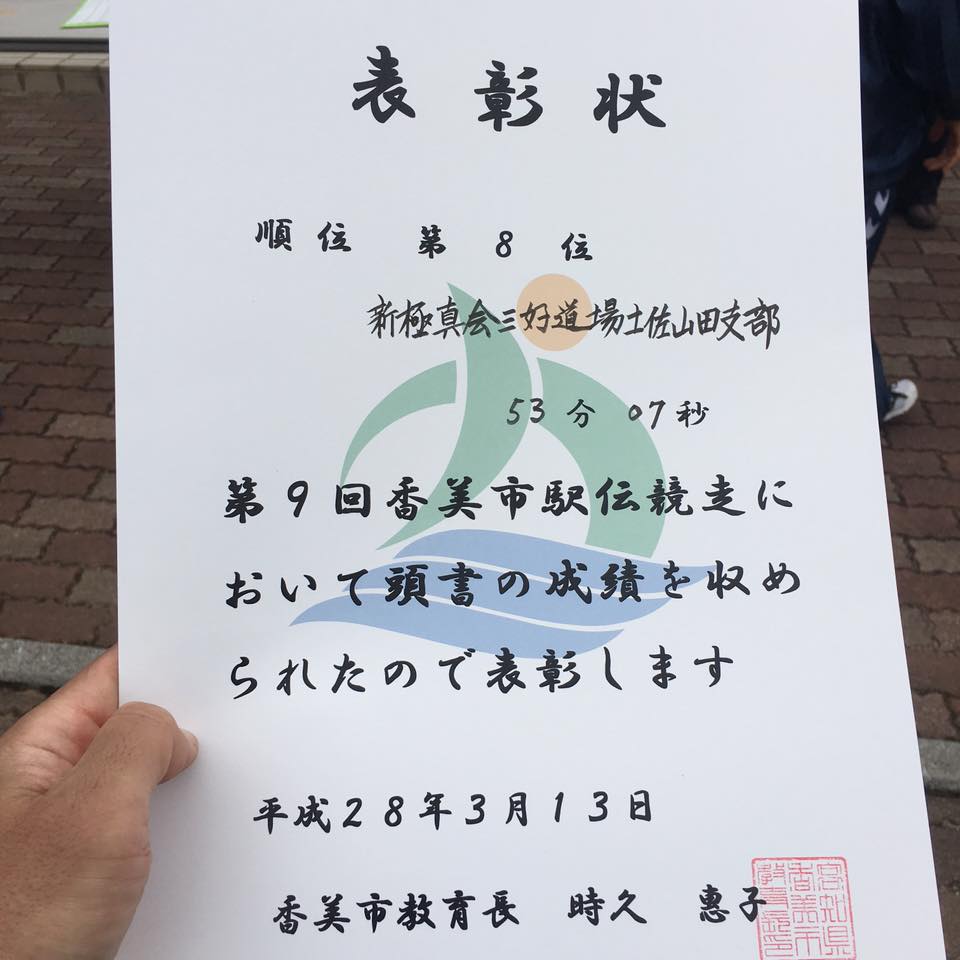 表彰状
順位 第 8 位
新極真会三好道場土佐山田支部
53 分 07 秒
第9回香美市駅伝競走に
おいて頭書の成績を収め
られたので表彰します
平成28年3月13日
香美市教育長 時久 惠子